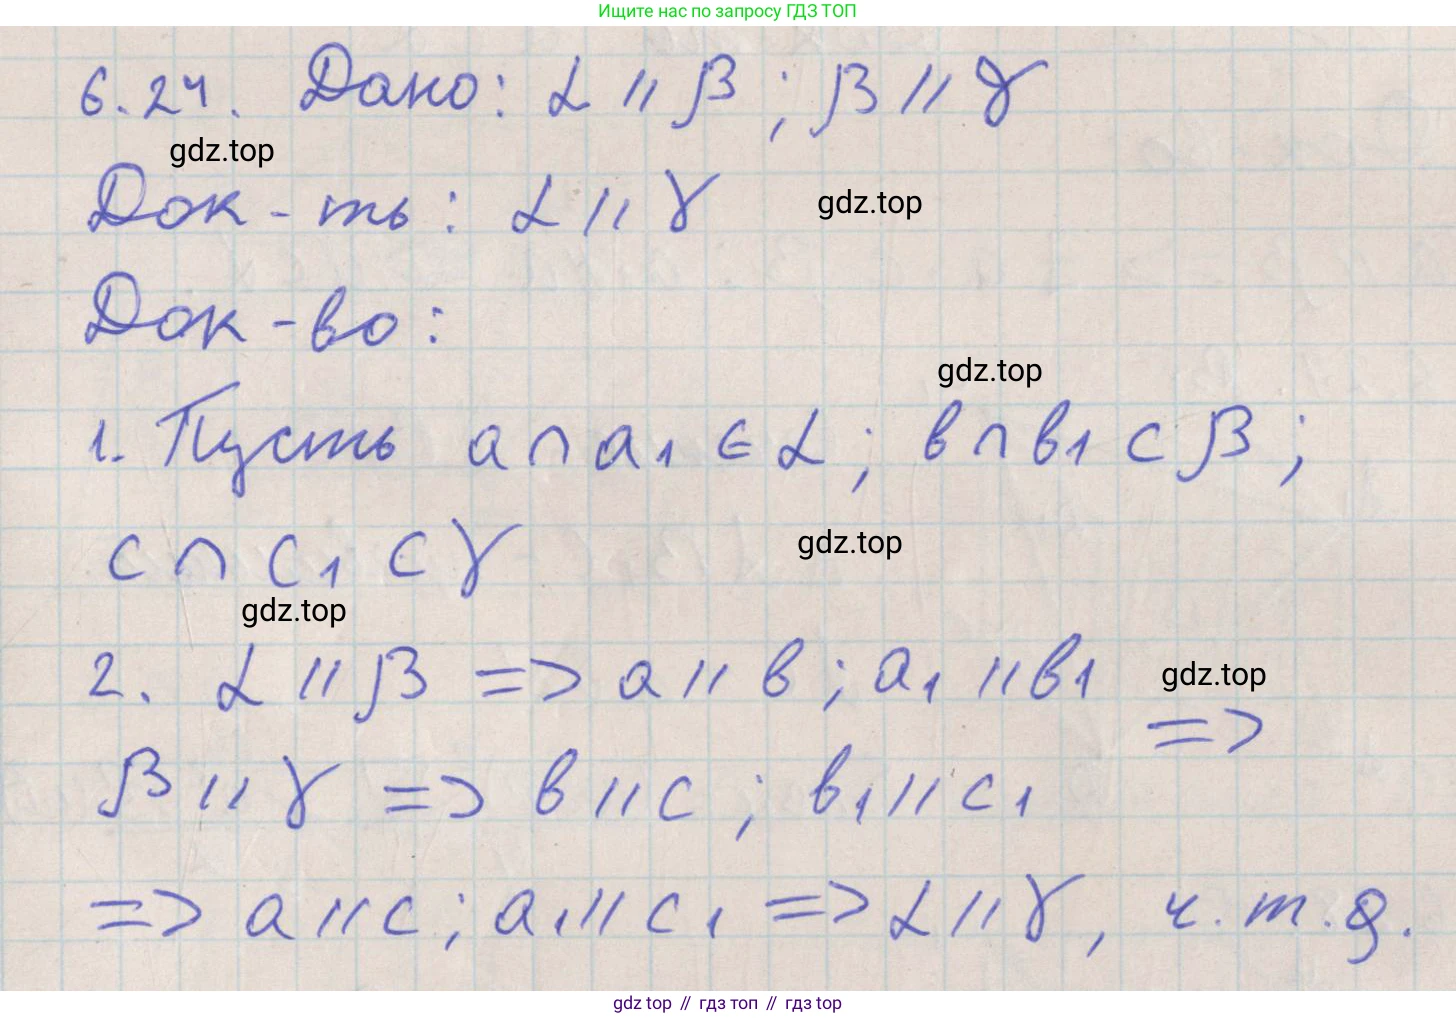 Ищите нас по запросу ГДЗ ТОП
6.24. Дано: α || β ; β || γ
gdz.top
Док-ть: α || γ
gdz.top
Док-во:
gdz.top
1. Пусть a ∩ a₁ ∈ α ; b ∩ b₁ ⊂ β ;
c ∩ c₁ ⊂ γ
gdz.top
gdz.top
2. α || β => a || b ; a₁ || b₁
gdz.top
=>
β || γ => b || c ; b₁ || c₁
=> a || c ; a₁ || c₁ => α || γ, ч.т.д.
gdz top // гдз топ // гдз top